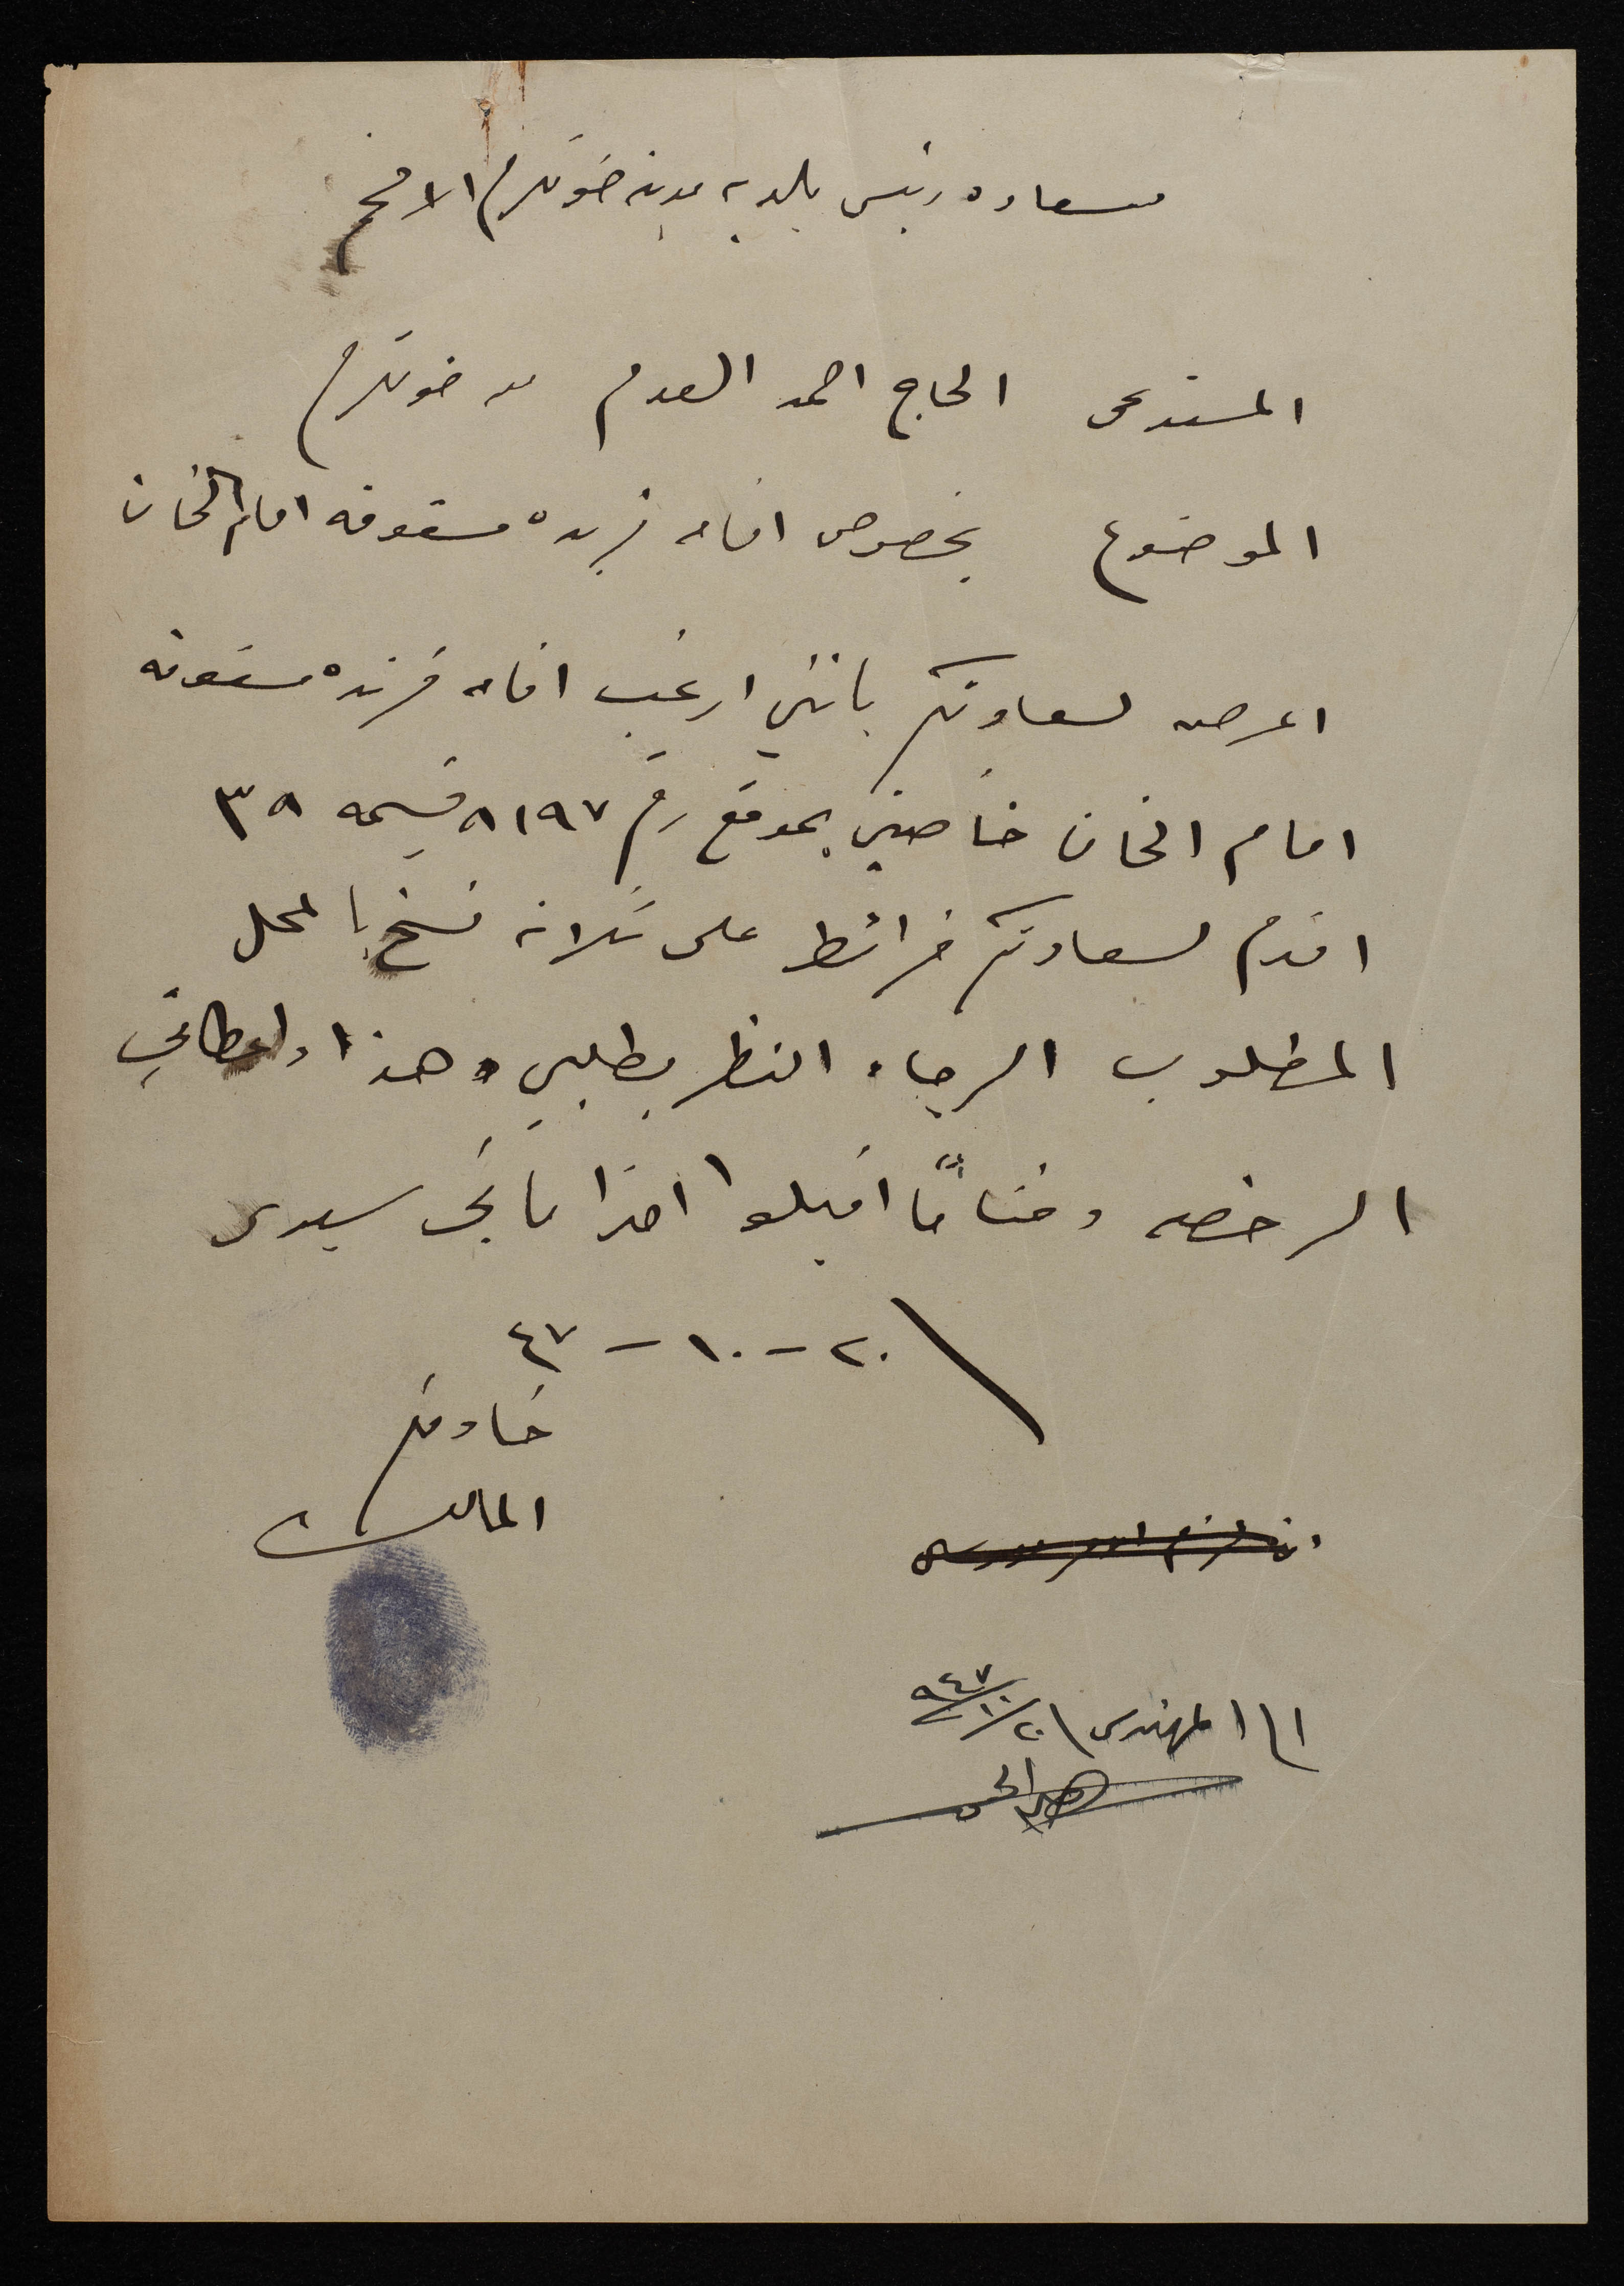 سعادة رئيس بلدية مدينة طولكرم الافخم
المستدعي الحاج احمد من طولكرم
الموضوع بخصوص اقامة فرنده مسقوفه امام الخان
اعرض لسعادتكم بانني ارغب اقامة فرنده مسقوفه
امام الخان خاصتي بموقع رقم ٨١٩٧ قسيمه ٣٩
اقدم لسعادتكم خرائط على ثلاثة نسخ بالمحل
المطلوب الرجاء النظر بطلبي هذا واعطائي
الرخصه وختاماً اقبلوا احتراماتي سيدي
٢٠-١٠-٤٧
خادمكم
المالك
المهندس ٢٠/١٠/٩٤٧